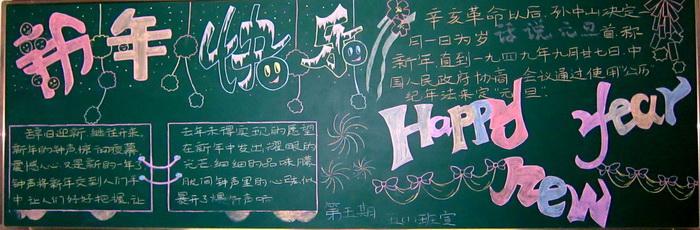 新年快乐
辞旧迎新,继往开来,
新年的钟声惊动夜幕
震憾人心又是新的一年了
钟声将新年交到人们手
中让人们好好把握,让
去年未得实现的愿望
在新年中发出耀眼的
光芒细细的品味腾
胧间钟声里的心
展开了
第五期
班宣
辛亥革命以后,孙中山决定
月一日为岁
话说元旦
首称
新年直到一九四九年九月廿七日,中
国人民政府协商会议通过使用"公历"
纪年法来定"元旦"
Happy new year